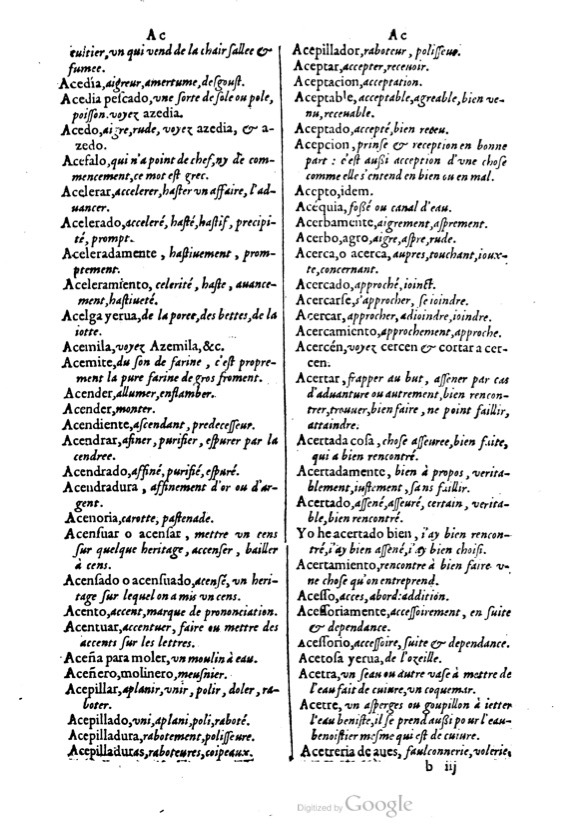 Ac
cuitier, vn qui vend de la chair sallee &
fumee.
Acedía, aigreur, amertume, desgoust.
Acedia pescado, vne sorte de sole ou pole,
poisson. voyez azedia.
Acedo, aigre, rude, voyez azedia, & a-
zedo.
Acefalo, qui n'a point de chef, ny de com-
mencement, ce mot est grec.
Acelerar, accelerer, haster vn affaire, l'ad-
uancer.
Acelerado, acceleré, hasté, hastif, precipi-
té, prompt.
Aceleradamente, hastiuement, prom-
ptement.
Aceleramiento, celerité, haste, auance-
ment, hastiueté.
Acelga yerua, de la poree, des bettes, de la
iotte.
Acemila, voyez Azemila, &c.
Acemite, du son de farine, c'est propre-
ment la pure farine de gros froment.
Acender, allumer, enflamber.
Acender, monter.
Acendiente, ascendant, predecesseur.
Acendrar, afiner, purifier, espurer par la
cendree.
Acendrado, affiné, purifié, espuré.
Acendradura, affinement d'or ou d'ar-
gent.
Acenoria, carotte, pastenade.
Acensuar o acensar, mettre vn cens
sur quelque heritage, accenser, bailler
à cens.
Acensado o acensuado, acensé, vn heri-
tage sur lequel on a mis vn cens.
Acento, accent, marque de prononciation.
Acentuar, accentuer, faire ou mettre des
accents sur les lettres.
Aceña para moler, vn moulin à eau.
Aceñero, molinero, meusnier.
Acepillar, aplanir, vnir, polir, doler, ra-
boter.
Acepillado, vni, aplani, poli, raboté.
Acepilladura, rabotement, polisseure.
Acepilladuras, raboteures, coipeaux.
Ac
Acepillador, raboteur, polisseur.
Aceptar, accepter, receuoir.
Aceptacion, acceptation.
Aceptable, acceptable, agreable, bien ve-
nu, receuable.
Aceptado, accepté, bien receu.
Acepcion, prinse & reception en bonne
part : c'est aussi acception d'vne chose
comme elle s'entend en bien ou en mal.
Acepto, idem.
Acequia, fossé ou canal d'eau.
Acerbamente, aigrement, asprement.
Acerbo, agro, aigre, aspre, rude.
Acerca, o acerca, aupres, touchant, ioux-
te, concernant.
Acercado, approché, ioinct.
Acercarse, s'approcher, se ioindre.
Acercar, approcher, adioindre, ioindre.
Acercamiento, approchement, approche.
Acercén, voyez cercen & cortar a cer-
cen.
Acertar, frapper au but, assener par cas
d'aduanture ou autrement, bien rencon-
trer, trouuer, bien faire, ne point faillir,
attaindre.
Acertada cosa, chose asseuree, bien faite,
qui a bien rencontré.
Acertadamente, bien à propos, verita-
blement, iustement, sans faillir.
Acertado, assené, asseuré, certain, verita-
ble, bien rencontré.
Yo he acertado bien, i'ay bien rencon-
tré, i'ay bien assené, i'ay bien choisi.
Acertamiento, rencontre à bien faire v-
ne chose qu'on entreprend.
Acesso, acces, abord: addition.
Acessoriamente, accessoirement, en suite
& dependance.
Acessorio, accessoire, suite & dependance.
Acetosa yerua, de l'ozeille.
Acetra, vn seau ou autre vase à mettre de
l'eau fait de cuiure, vn coquemar.
Acetre, vn asperges ou goupillon à ietter
l'eau beniste, il se prend aussi pour l'eau-
benoistier mesme qui est de cuiure.
Acetreria de aues, faulconnerie, volerie,
b iij
Digitized by Google